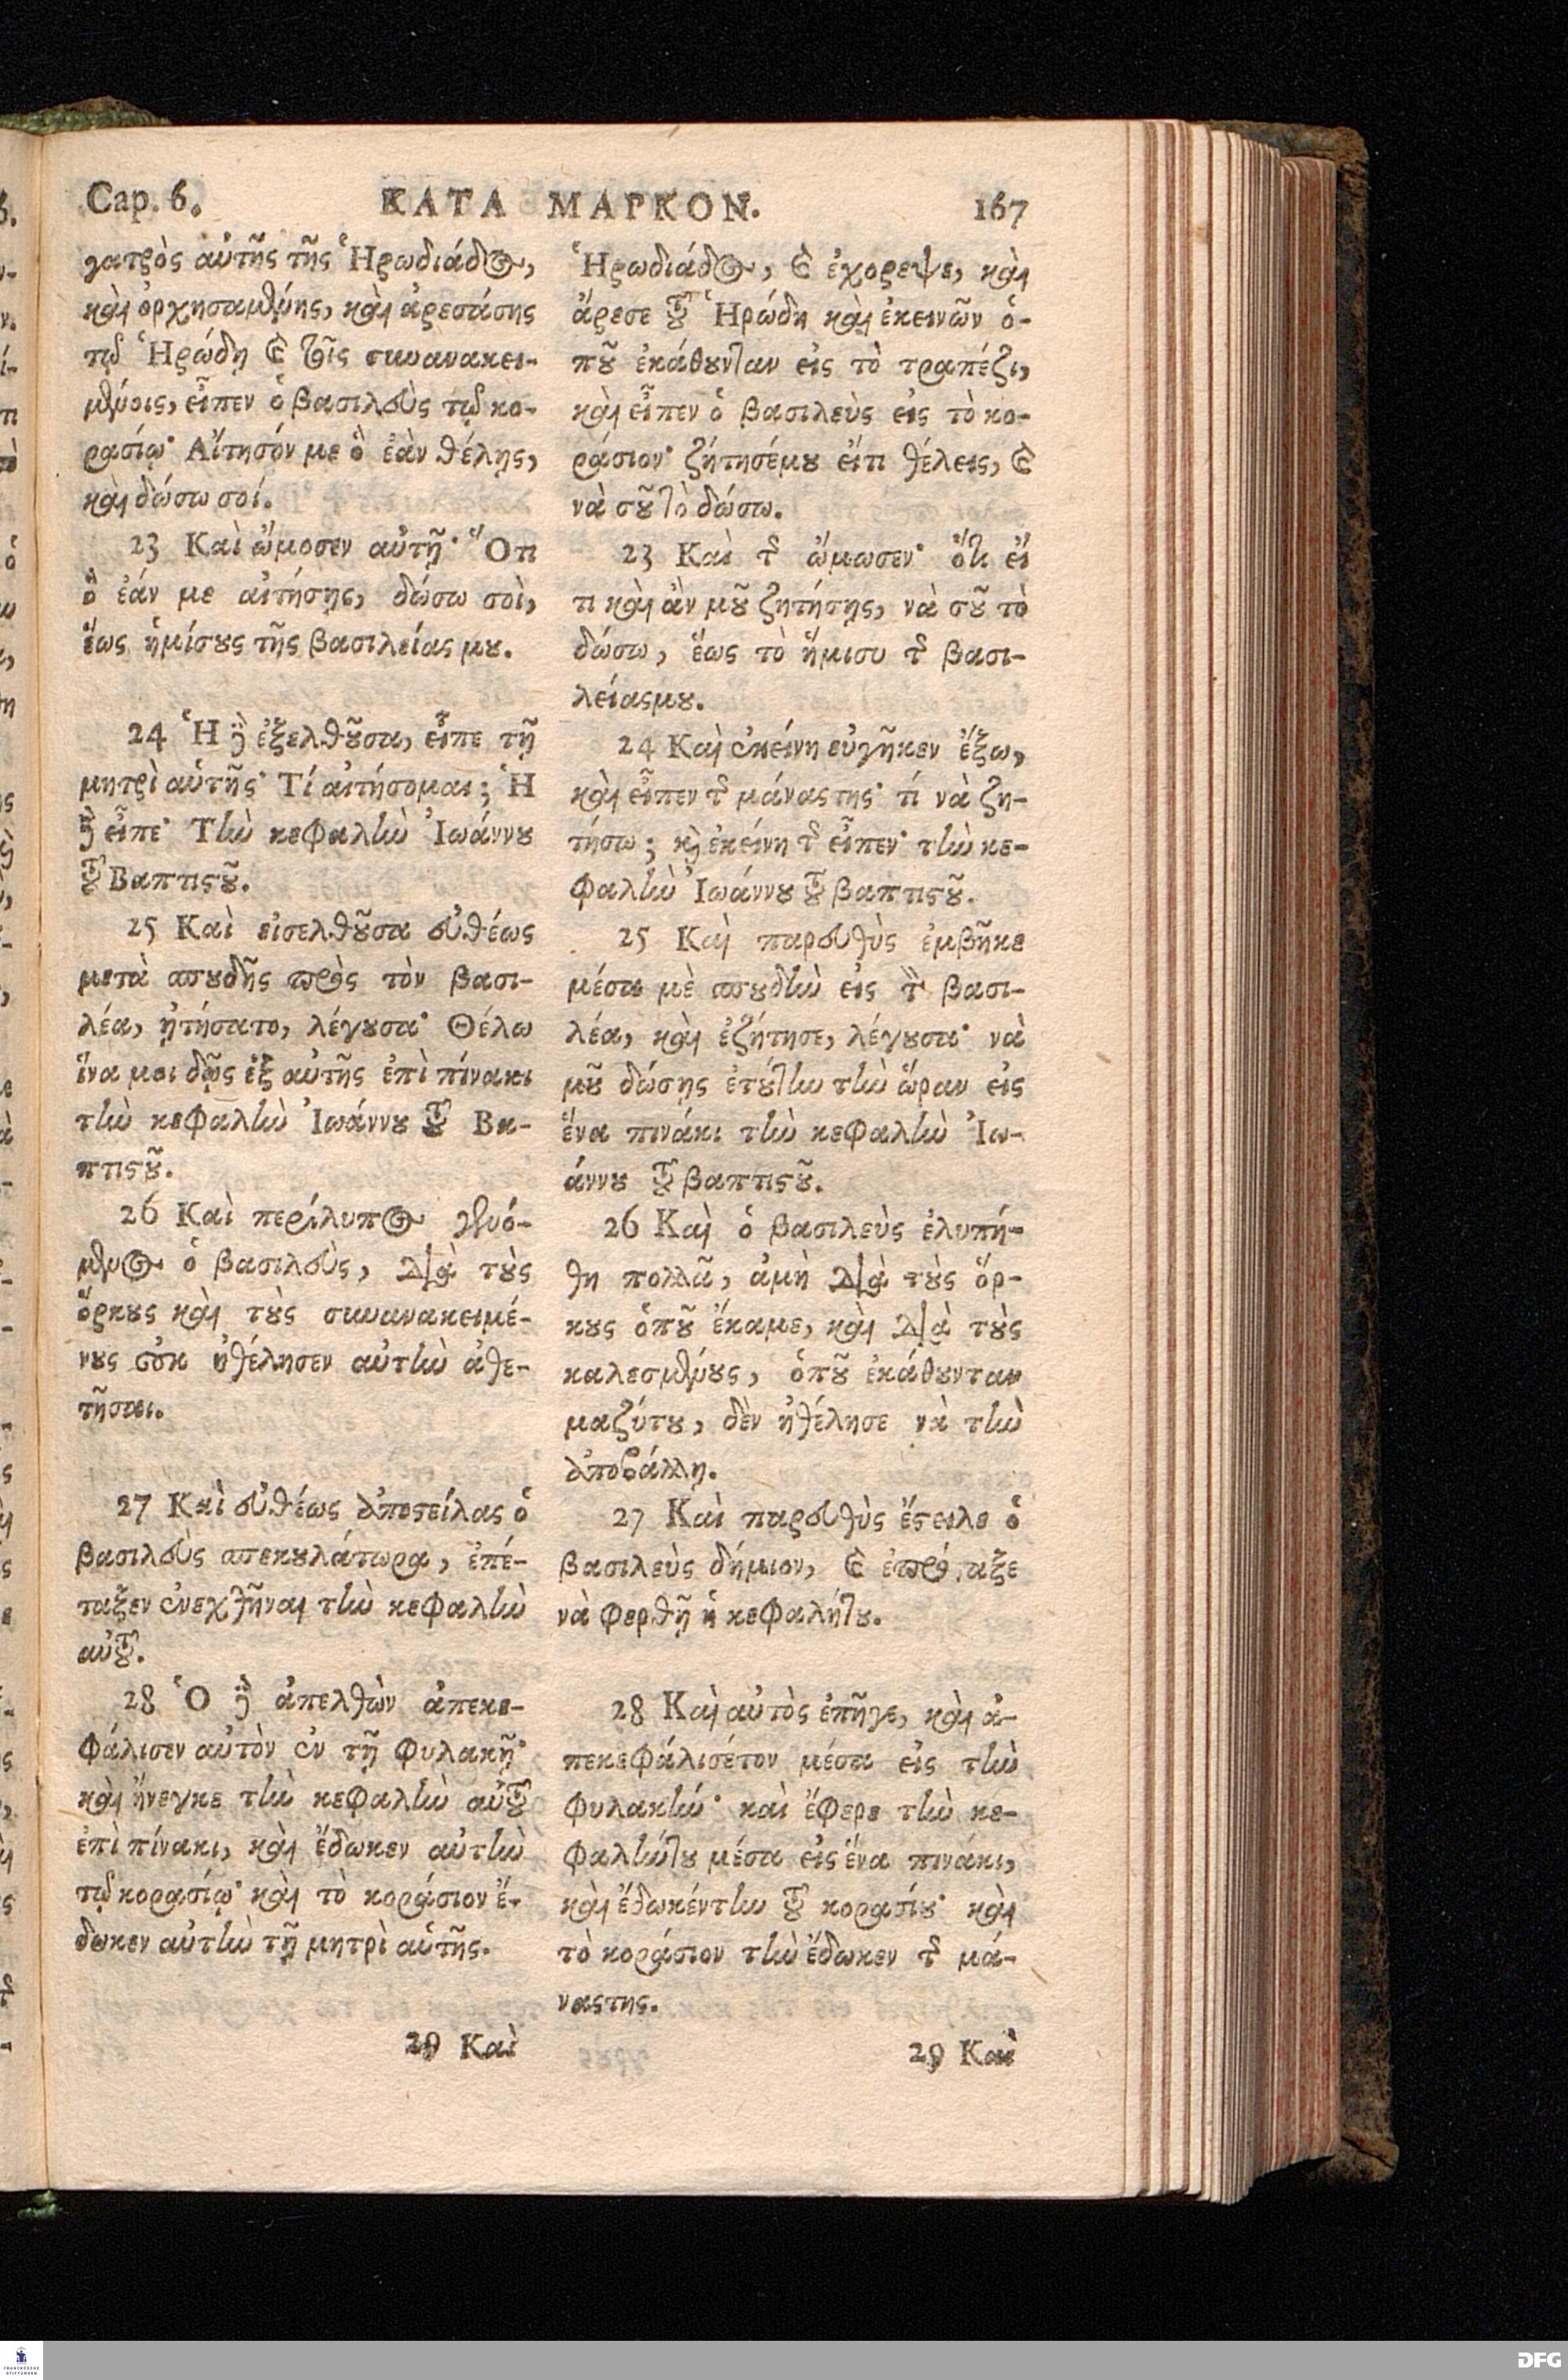 Cap. 6. ΚΑΤΑ ΜΑΡΚΟΝ. 167
γατρὸς αὐτῆς τῆς Ἡρωδιάδος,
καὶ ὀρχησαμένης, καὶ ἀρεσάσης
τῷ Ἡρώδῃ καὶ τοῖς συνανακει-
μένοις, εἶπεν ὁ βασιλεὺς τῷ κο-
ρασίῳ· Αἴτησόν με ὃ ἐὰν θέλῃς,
καὶ δώσω σοί.
23 Καὶ ὤμοσεν αὐτῇ· Ὅτι
ὃ ἐάν με αἰτήσῃς, δώσω σοὶ,
ἕως ἡμίσους τῆς βασιλείας μου.
24 Ἡ δὲ ἐξελθοῦσα, εἶπε τῇ
μητρὶ αὑτῆς· Τί αἰτήσομαι; Ἡ
δὲ εἶπε· Τὴν κεφαλὴν Ἰωάννου
τοῦ Βαπτιστοῦ.
25 Καὶ εἰσελθοῦσα εὐθέως
μετὰ σπουδῆς πρὸς τὸν βασι-
λέα, ᾐτήσατο, λέγουσα· Θέλω
ἵνα μοι δῷς ἐξ αὐτῆς ἐπὶ πίνακι
τὴν κεφαλὴν Ἰωάννου τοῦ Βα-
πτιστοῦ.
26 Καὶ περίλυπος γενό-
μενος ὁ βασιλεὺς, διὰ τοὺς
ὅρκους καὶ τοὺς συνανακειμέ-
νους οὐκ ἠθέλησεν αὐτὴν ἀθε-
τῆσαι.
27 Καὶ εὐθέως ἀποστείλας ὁ
βασιλεὺς σπεκουλάτωρα, ἐπέ-
ταξεν ἐνεχθῆναι τὴν κεφαλὴν
αὐτοῦ.
28 Ὁ δὲ ἀπελθὼν ἀπεκε-
φάλισεν αὐτὸν ἐν τῇ φυλακῇ·
καὶ ἤνεγκε τὴν κεφαλὴν αὐτοῦ
ἐπὶ πίνακι, καὶ ἔδωκεν αὐτὴν
τῷ κορασίῳ· καὶ τὸ κοράσιον ἔ-
δωκεν αὐτὴν τῇ μητρὶ αὑτῆς.
29 Καὶ
Ἡρωδιάδος, καὶ ἐχορεψε, καὶ
ἄρεσε τοῦ Ἡρώδη καὶ ἐκεινῶν ὁ-
ποῦ ἐκάθουνταν εἰς τὸ τραπέζι,
καὶ εἶπεν ὁ βασιλεὺς εἰς τὸ κο-
ράσιον· ζήτησέμου εἴτι θέλεις, καὶ
νὰ σοῦ τὸ δώσω.
23 Καὶ τῆς ὤμωσεν· ὅτι εἴ
τι καὶ ἂν μοῦ ζητήσῃς, νὰ σοῦ τὸ
δώσω, ἕως τὸ ἥμισυ τῆς βασι-
λείαςμου.
24 Καὶ ἐκείνη εὐγῆκεν ἔξω,
καὶ εἶπεν τῆς μάναςτης· τί νὰ ζη-
τήσω; καὶ ἐκείνη τῆς εἶπεν· τὴν κε-
φαλὴν Ἰωάννου τοῦ βαπτιστοῦ.
25 Καὶ παρευθὺς ἐμβῆκε
μέσα μὲ σπουδὴν εἰς τὸν βασι-
λέα, καὶ ἐζήτησε, λέγουσα· νὰ
μοῦ δώσῃς ἐτούτην τὴν ὥραν εἰς
ἕνα πινάκι τὴν κεφαλὴν Ἰω-
άννου τοῦ βαπτιστοῦ.
26 Καὶ ὁ βασιλεὺς ἐλυπή-
θη πολλᾶ, ἀμὴ διὰ τοὺς ὅρ-
κους ὁποῦ ἔκαμε, καὶ διὰ τοὺς
καλεσμένους, ὁποῦ ἐκάθουνταν
μαζύτου, δὲν ἠθέλησε νὰ τὴν
ἀποβάλλῃ.
27 Καὶ παρευθὺς ἔστειλε ὁ
βασιλεὺς δήμιον, καὶ ἐπρόσταξε
νὰ φερθῇ ἡ κεφαλήτου.
28 Καὶ αὐτὸς ἐπῆγε, καὶ ἀ-
πεκεφάλισέτον μέσα εἰς τὴν
φυλακήν· καὶ ἔφερε τὴν κε-
φαλήντου μέσα εἰς ἕνα πινάκι,
καὶ ἐδωκέντην τοῦ κορασίου· καὶ
τὸ κοράσιον τὴν ἔδωκεν τῆς μά-
ναςτης.
29 Καὶ
FRANCKESCHE
STIFTUNGEN
DFG